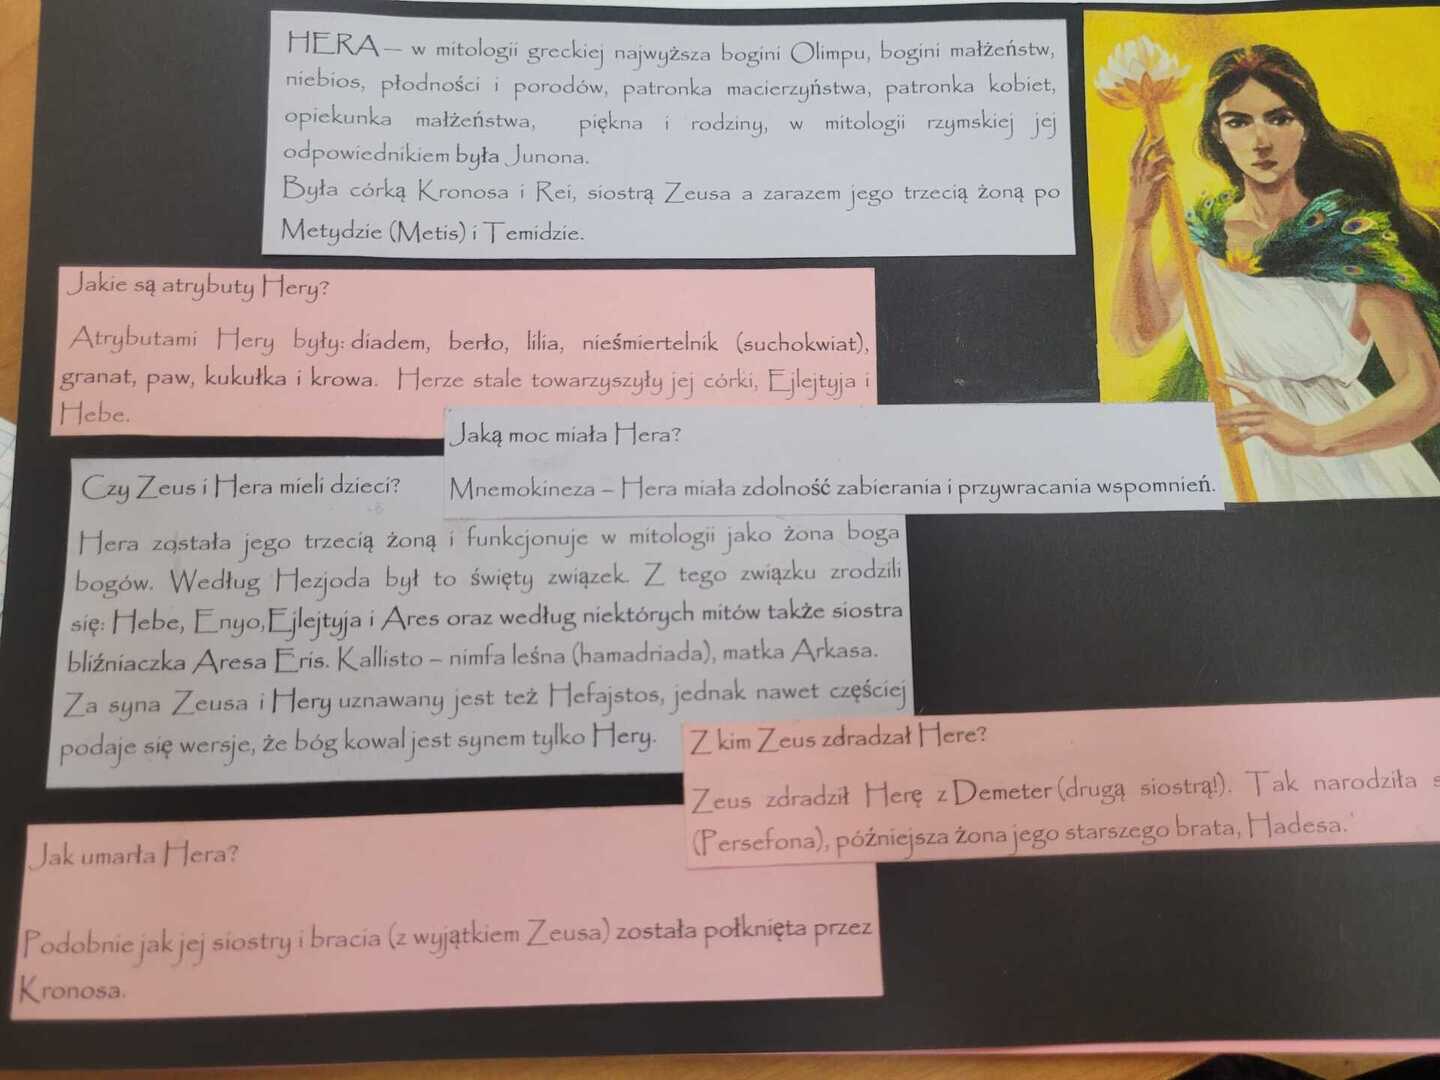 HERA – w mitologii greckiej najwyższa bogini Olimpu, bogini małżeństw,
niebios, płodności i porodów, patronka macierzyństwa, patronka kobiet,
opiekunka małżeństwa, piękna i rodziny, w mitologii rzymskiej jej
odpowiednikiem była Junona.
Była córką Kronosa i Rei, siostrą Zeusa a zarazem jego trzecią żoną po
Metydzie (Metis) i Temidzie.
Jakie są atrybuty Hery?
Atrybutami Hery były: diadem, berło, lilia, nieśmiertelnik (suchokwiat),
granat, paw, kukułka i krowa. Herze stale towarzyszyły jej córki, Ejlejtyja i
Hebe.
Jaką moc miała Hera?
Mnemokineza – Hera miała zdolność zabierania i przywracania wspomnień.
Czy Zeus i Hera mieli dzieci?
Hera została jego trzecią żoną i funkcjonuje w mitologii jako żona boga
bogów. Według Hezjoda był to święty związek. Z tego związku zrodzili
się: Hebe, Enyo,Ejlejtyja i Ares oraz według niektórych mitów także siostra
bliźniaczka Aresa Eris. Kallisto – nimfa leśna (hamadriada), matka Arkasa.
Za syna Zeusa i Hery uznawany jest też Hefajstos, jednak nawet częściej
podaje się wersje, że bóg kowal jest synem tylko Hery.
Z kim Zeus zdradzał Here?
Zeus zdradził Herę z Demeter (drugą siostrą!). Tak narodziła
(Persefona), późniejsza żona jego starszego brata, Hadesa.
Jak umarła Hera?
Podobnie jak jej siostry i bracia (z wyjątkiem Zeusa) została połknięta przez
Kronosa.